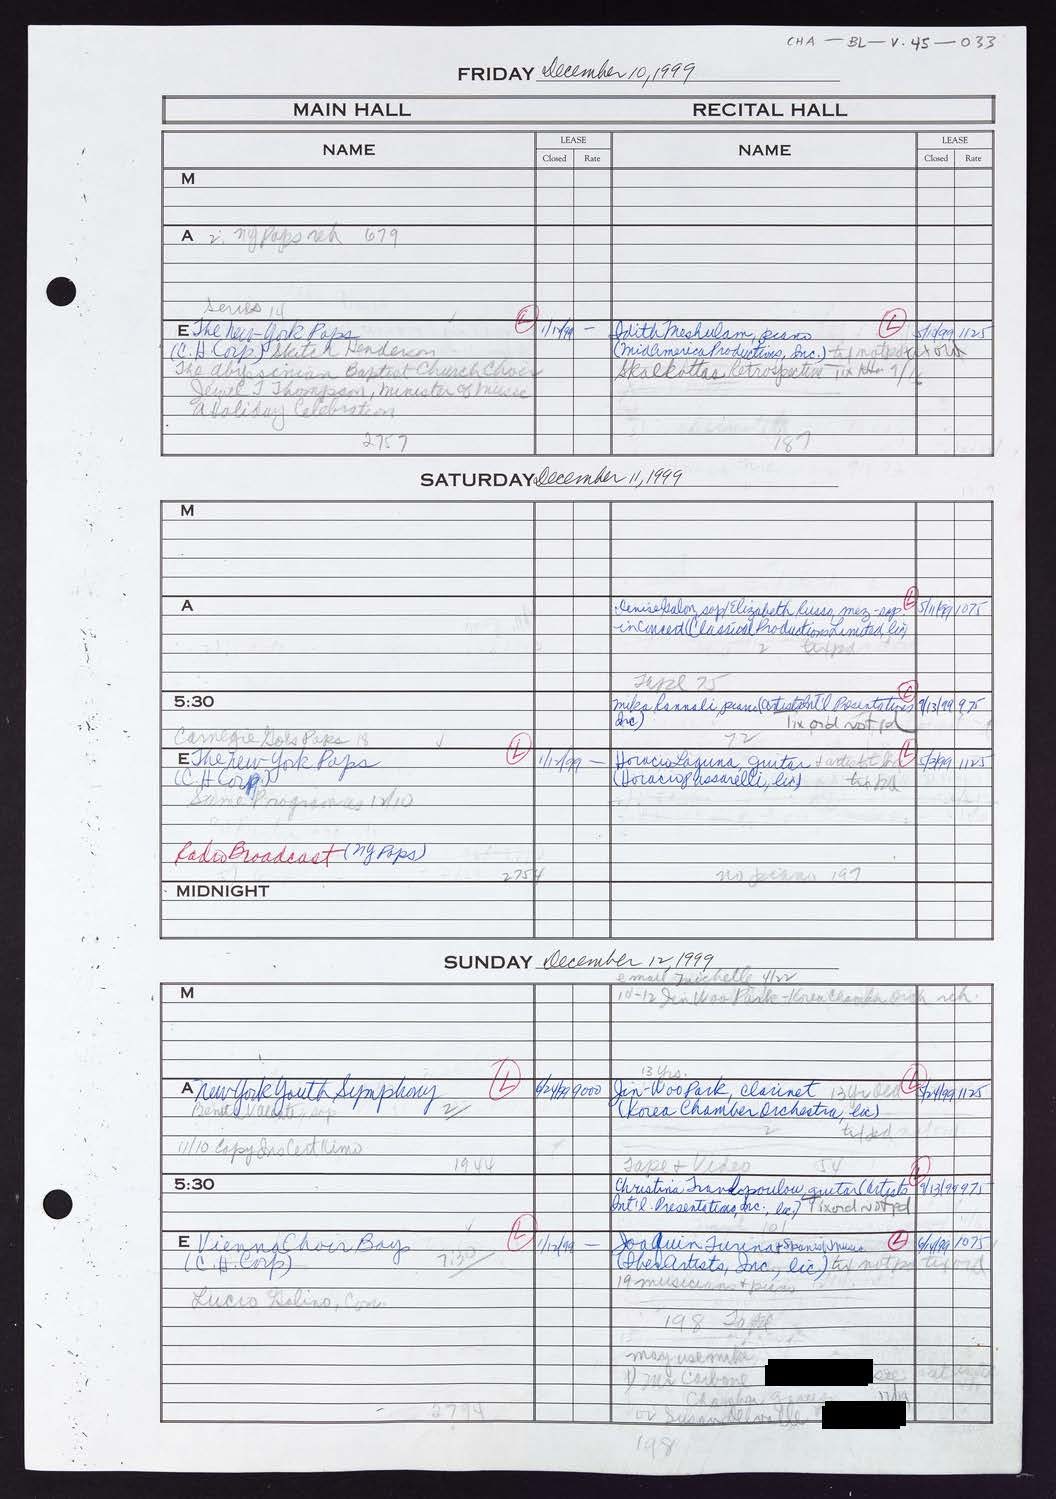 CHA - BL - V.45 - 033
FRIDAY December 10, 1999
MAIN HALL RECITAL HALL
NAME LEASE NAME LEASE
Closed Rate Closed Rate
M
A 2: NY Pops reh 679
Series 14
E The New York Pops L 1/12/99 — Idith Meshulam, piano L 1125
(C.H. Corp) Skitch Henderson (MidAmerica Productions, Inc.) tix not pd tix ord
The Abyssinian Baptist Church Choir Skalkottas Retrospective
Jewel T Thompson, Minister of Music
A Holiday Celebration
2757 187
SATURDAY December 11, 1999
M
A Elizabeth Russo, mez-sop L 5/11/99 1075
in Concert (Classical Productions Limited, lic)
2 tix pd
Tape 75
5:30 Mika Rannali, piano (Artists Int'l Presentations L 9/13/99 975
Inc) Tix ord not pd
Carnegie Pops 18 72
E The New York Pops L 1/12/99 — Horacio Laguna, guitar L 5/3/99 1125
(C.H. Corp.) (Horacio Passarelli, lic) tix pd
Same Program as 12/10
Radio Broadcast (NY Pops)
2754 no piano 197
MIDNIGHT
SUNDAY December 12, 1999
email Michelle 4/22
M 10-12 Jin Woo Park - Korea Chamber Orch reh.
13 yrs.
A New York Youth Symphony L 6/24/99 9000 Jin-Woo Park, clarinet 13 yr old L 1125
2/ (Korea Chamber Orchestra, lic)
2 tix pd
11/10 Copy Ins Cert
1944 Tape + Video 54
5:30 Christina guitar (Artists L 9/13/99 975
Int'l. Presentations, Inc., lic) Tix ord not pd
101
E Vienna Choir Boys L 1/12/99 — Joaquin Turina + Spanish Music L 1075
(C.H. Corp) 7:30 (Iber Artists, Inc., lic) tix not pd tix ord
19 musicians + piano
198 Tape
may use
1) Mr Carbone
or Susan
2794
198